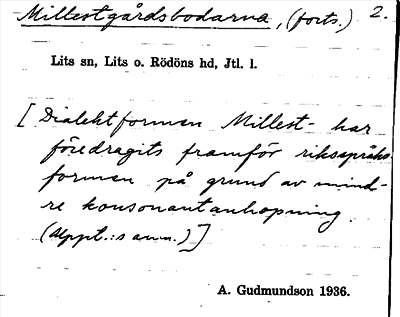 Millestgårdsbodarna, (forts.) 2.
Lits sn, Lits o. Rödöns hd, Jtl. l.
[Dialektformen Millest- har
föredragits framför riksspråks-
formen på grund av mind-
re konsonantanhopning.
(Uppt.:s anm.)]
A. Gudmundson 1936.